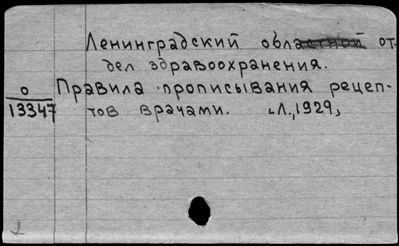 Ленинградский областной от-
дел здравоохранения.
О Правила прописывания рецеп-
13347 тов врачами. Л., 1929,